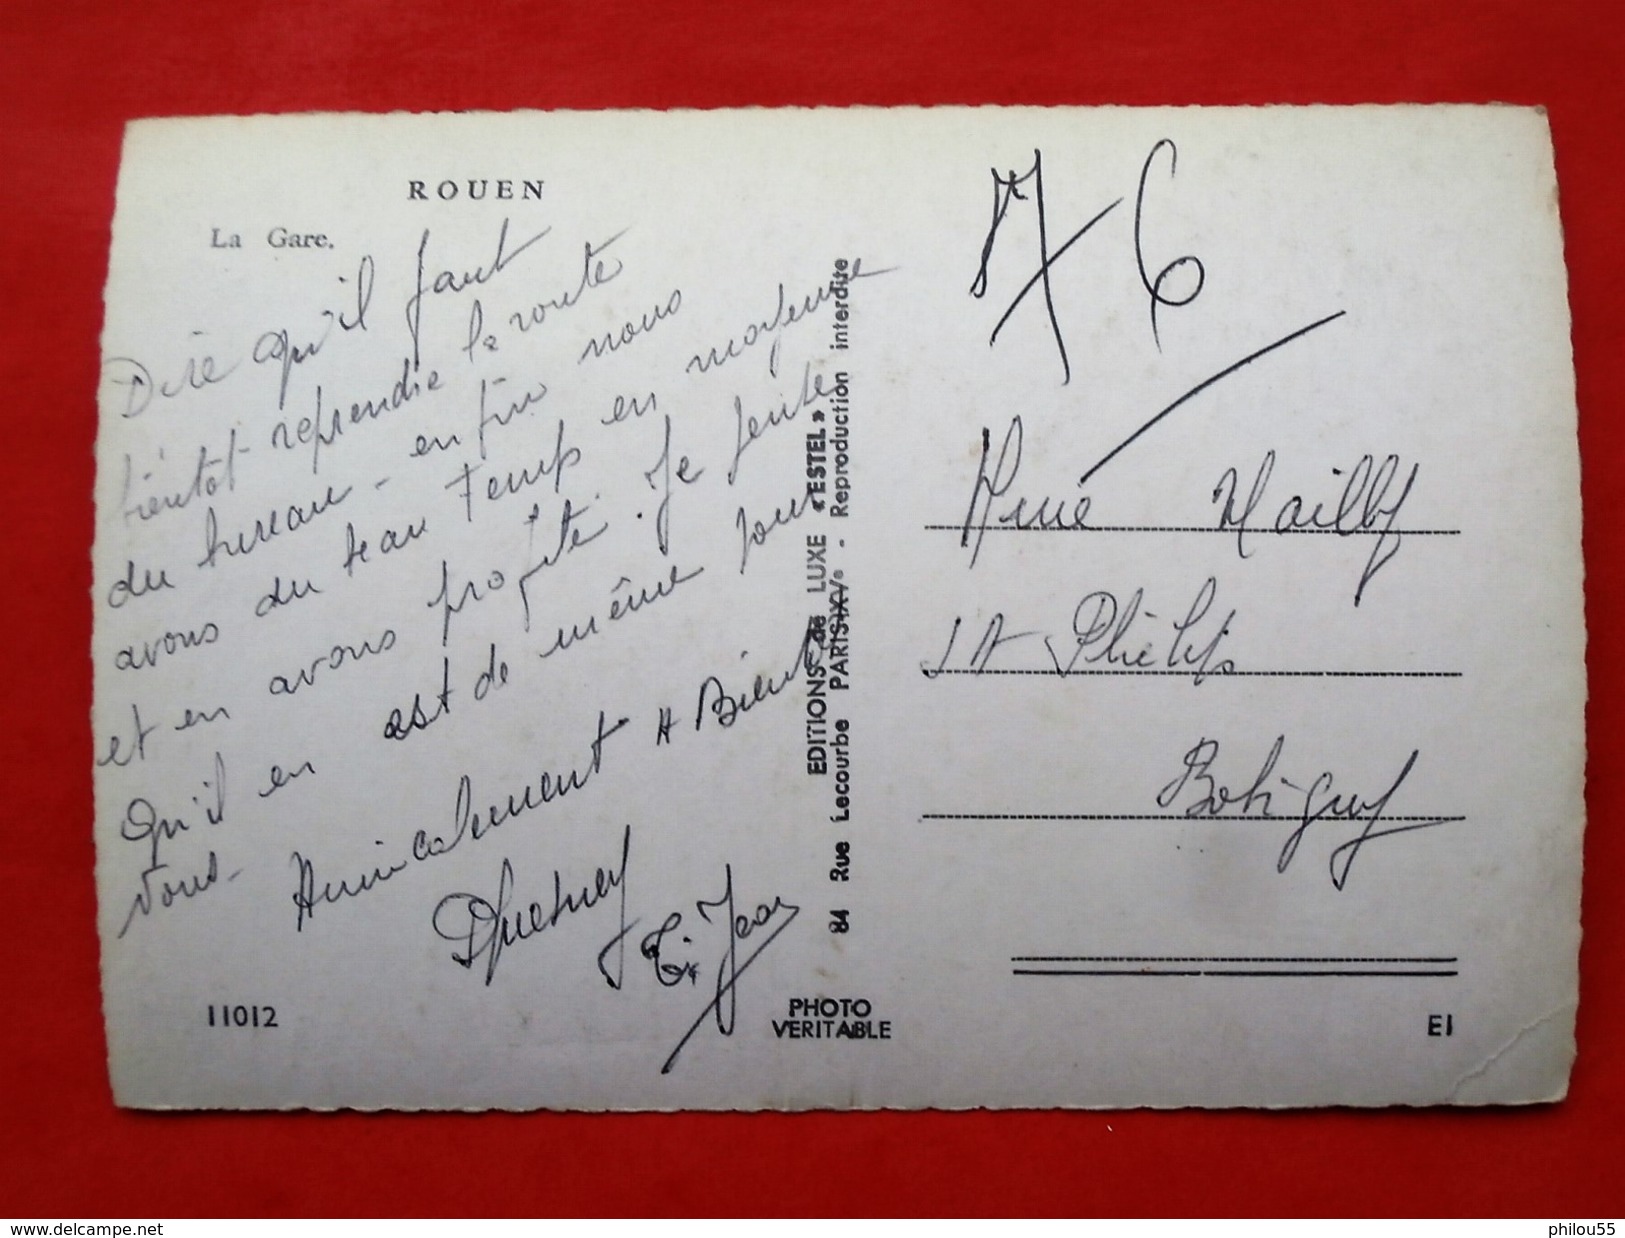 ROUEN
La Gare.
Dire qu'il faut
bientôt reprendre la route
du bureau - enfin nous
avons du beau temps en moyenne
et en avons profité. Je pense
Qu'il en est de même pour
vous -
Amicalement A Bientôt
Ti Jean
11012
PHOTO
VERITABLE
EDITIONS de LUXE «ESTEL»
84 Rue Lecourbe PARIS-XVe - Reproduction interdite
76
René Mailly
Bobigny
E1
www.delcampe.net
philou55